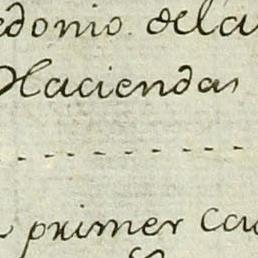 edonio. dela
Haciendas
primer Cau